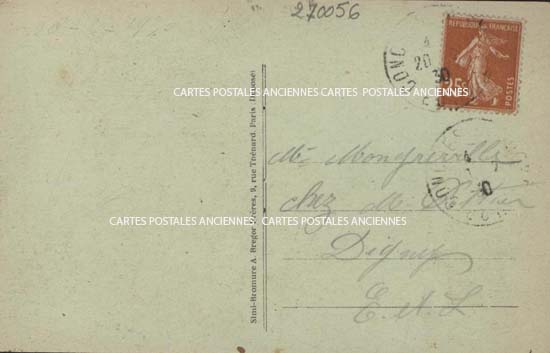 270056
REPUBLIQUE FRANÇAISE
POSTES
20
30
CARTES POSTALES ANCIENNES CARTES POSTALES ANCIENNES
Simi-Bromure A. Breger Frères, 9, rue Thénard. Paris (Déposé)
Mr
chez Mr
30
CARTES POSTALES ANCIENNES CARTES POSTALES ANCIENNES
Digny
E. et L